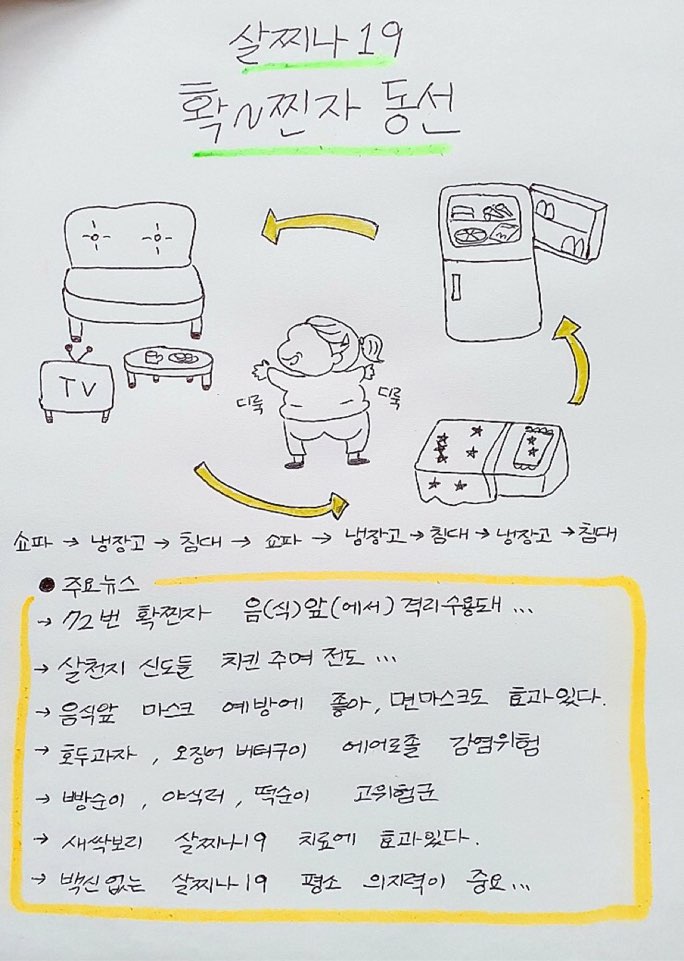 살찌나19
확~찐자 동선
TV
디룩
디룩
쇼파 → 냉장고 → 침대 → 쇼파 → 냉장고 → 침대 → 냉장고 → 침대
● 주요뉴스
→ 72번 확찐자 음(식)앞(에서) 격리수용돼 ...
→ 살천지 신도들 치킨 주며 전도 ...
→ 음식앞 마스크 예방에 좋아, 면마스크도 효과있다.
→ 호두과자, 오징어 버터구이 에어로졸 감염위험
→ 빵순이, 야식러, 떡순이 고위험군
→ 새싹보리 살찌나19 치료에 효과있다.
→ 백신없는 살찌나19 평소 의지력이 중요...